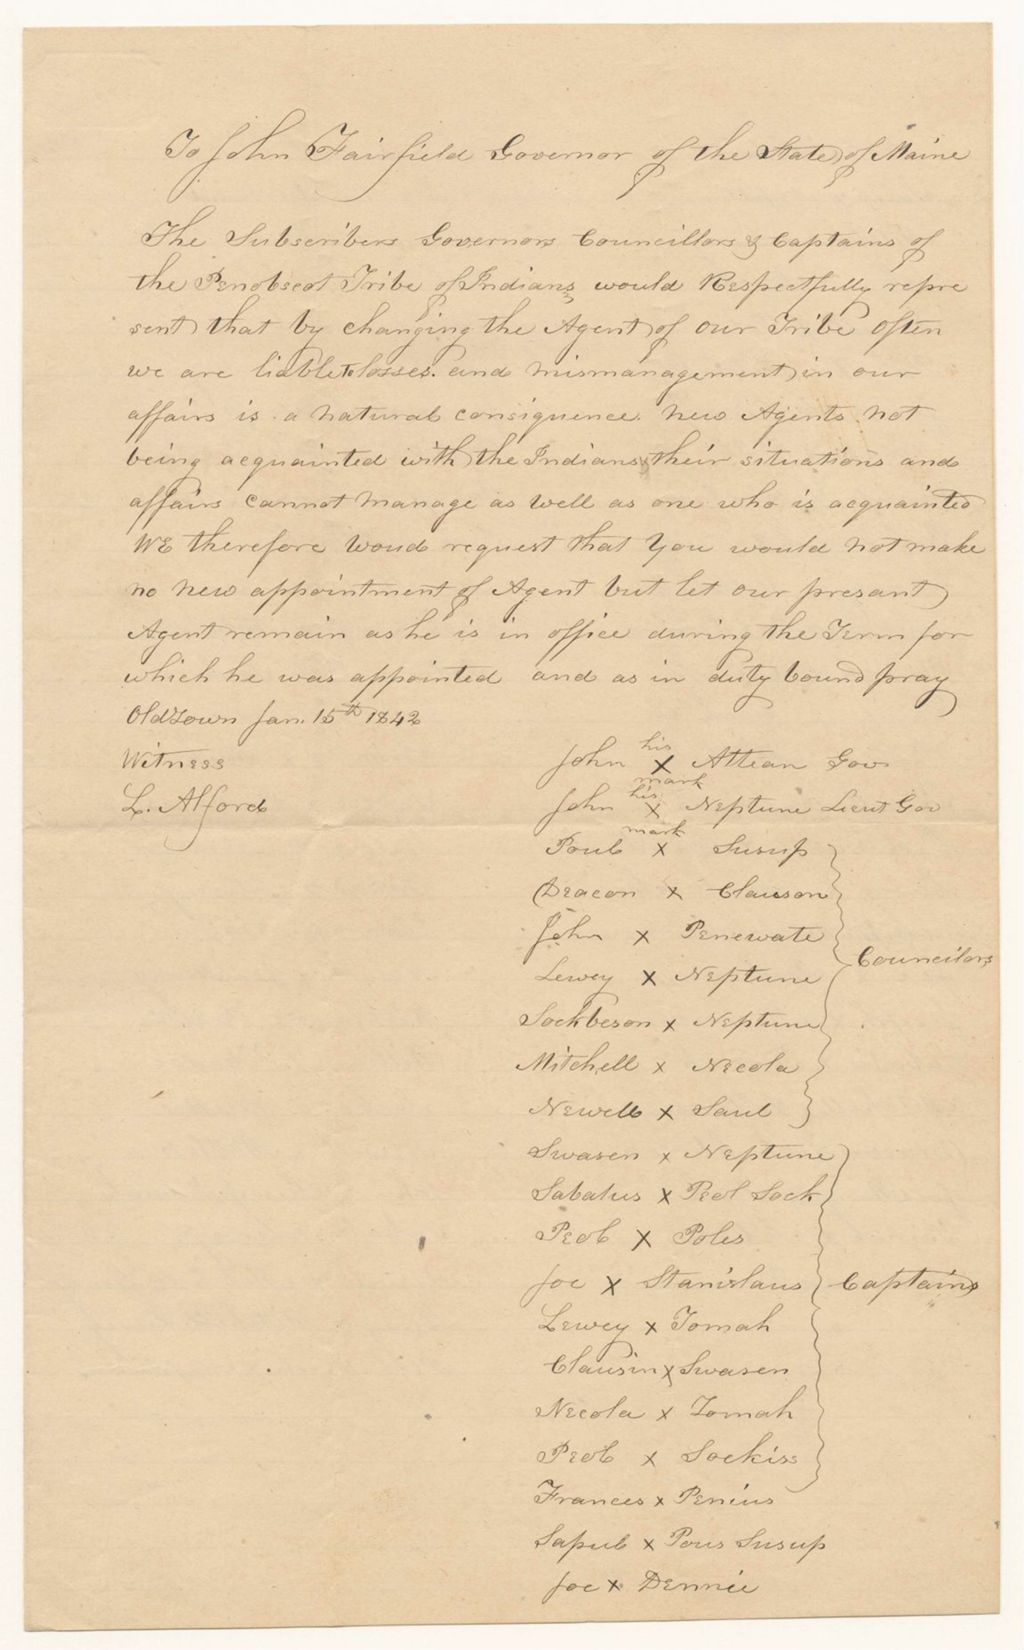 To John Fairfield Governor of the State of Maine
The Subscribers Governors Councillors & Captains of
the Penobscot Tribe of Indians, would Respectfully repre
sent that by changing the Agent of our Tribe often
we are liable to losses. and mismanagement in our
affairs is a natural consiquence. New Agents not
being acquainted with the Indians & their situations and
affairs cannot manage as well as one who is acquainted
WE therefore woud request that you would not make
no new appointment of Agent but let our presant
Agent remain as he is in office during the Term for
which he was appointed and as in duty bound pray
Oldtown Jan. 15th 1842
Witness
L. Alford
John his X mark Attean Gov
John his X mark Neptune Lieut Gov
Poul X Susup
Deacon X Clauson
John X Penewate
Lewey X Neptune
Sockbeson X Neptune
Mitchell X Necola
Newell X Saul
Councilors
Swasen X Neptune
Sabatus X Peol Sock
Peol X Poles
Joe X Stanislaus
Lewey X Tomah
Clausin X Swasen
Necola X Tomah
Peol X Sockiss
Captains
Frances X Penius
Sapul X Pous Susup
Joe X Dennie